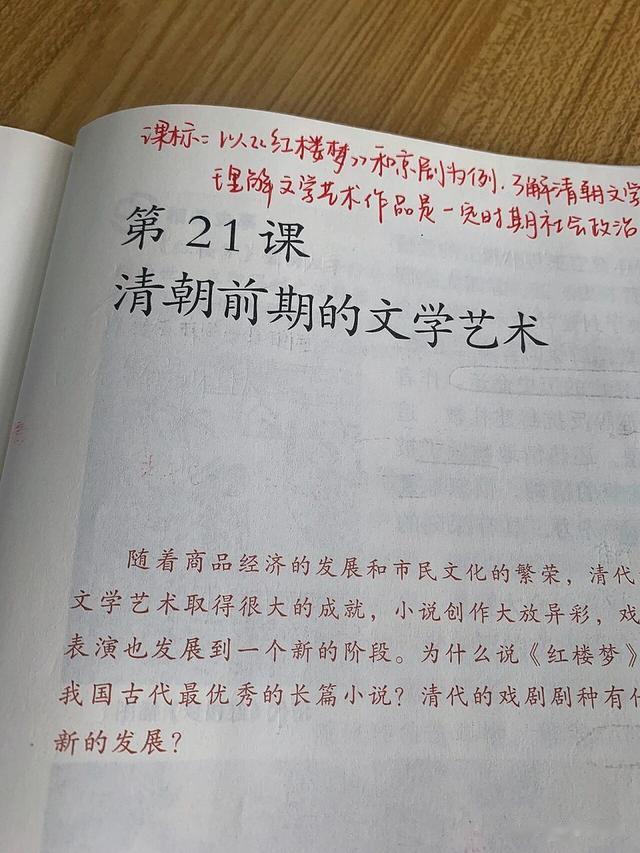 课标：以《红楼梦》和京剧为例，了解清朝文学
理解文学艺术作品是一定时期社会政治
第 21 课
清朝前期的文学艺术
随着商品经济的发展和市民文化的繁荣，清代
文学艺术取得很大的成就，小说创作大放异彩，戏
表演也发展到一个新的阶段。为什么说《红楼梦》
我国古代最优秀的长篇小说？清代的戏剧剧种有什
新的发展？